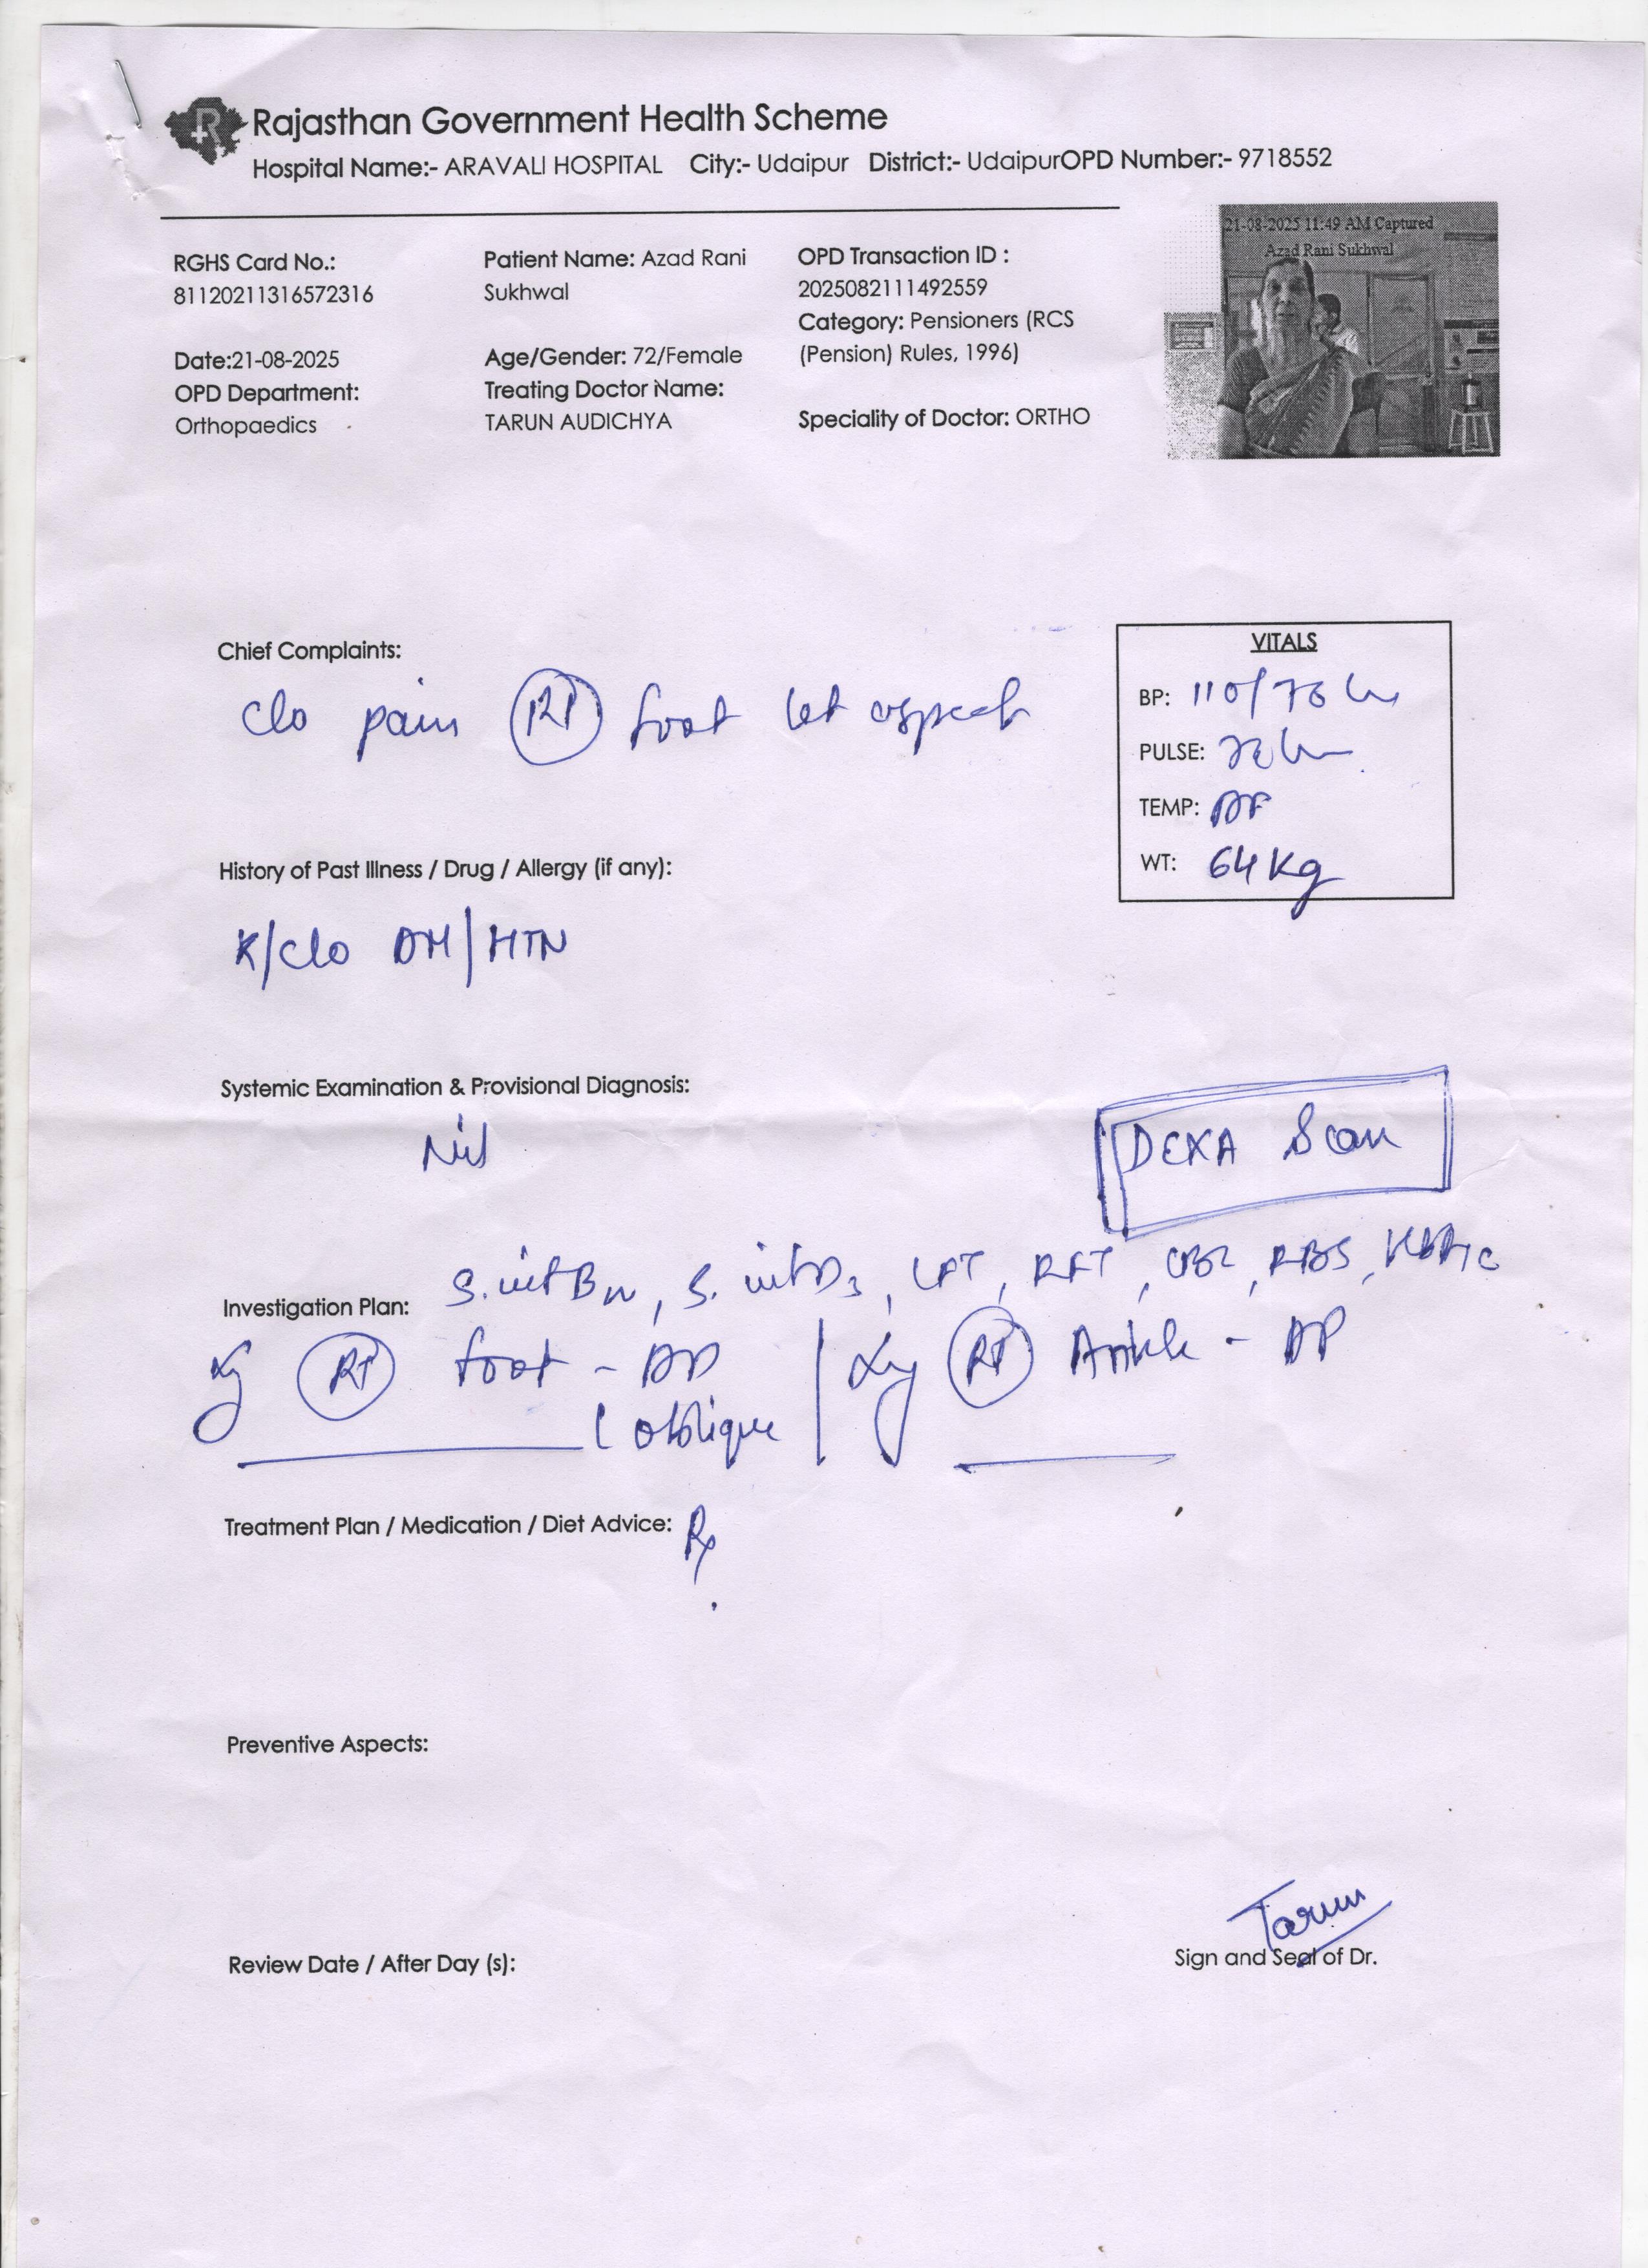 Rajasthan Government Health Scheme
Hospital Name:- ARAVALI HOSPITAL City:- Udaipur District:- UdaipurOPD Number:- 9718552
21-08-2025 11:49 AM Captured
Azad Rani Sukhwal
RGHS Card No.:
81120211316572316
Date:21-08-2025
OPD Department:
Orthopaedics
Patient Name: Azad Rani
Sukhwal
Age/Gender: 72/Female
Treating Doctor Name:
TARUN AUDICHYA
OPD Transaction ID :
2025082111492559
Category: Pensioners (RCS
(Pension) Rules, 1996)
Speciality of Doctor: ORTHO
Chief Complaints:
C/o pain RT foot lat aspect
VITALS
BP: 110/70
PULSE:
TEMP: AF
WT: 64 Kg
History of Past Illness / Drug / Allergy (if any):
K/C/o DM/HTN
Systemic Examination & Provisional Diagnosis:
Nil
DEXA Scan
S. vit B12, S. vit D3, LFT, RFT, CBC, RBS, HbA1c
Investigation Plan:
RT foot - AP
oblique
RT Ankle - AP
Treatment Plan / Medication / Diet Advice: Rx
Preventive Aspects:
Tarun
Review Date / After Day (s):
Sign and Seal of Dr.